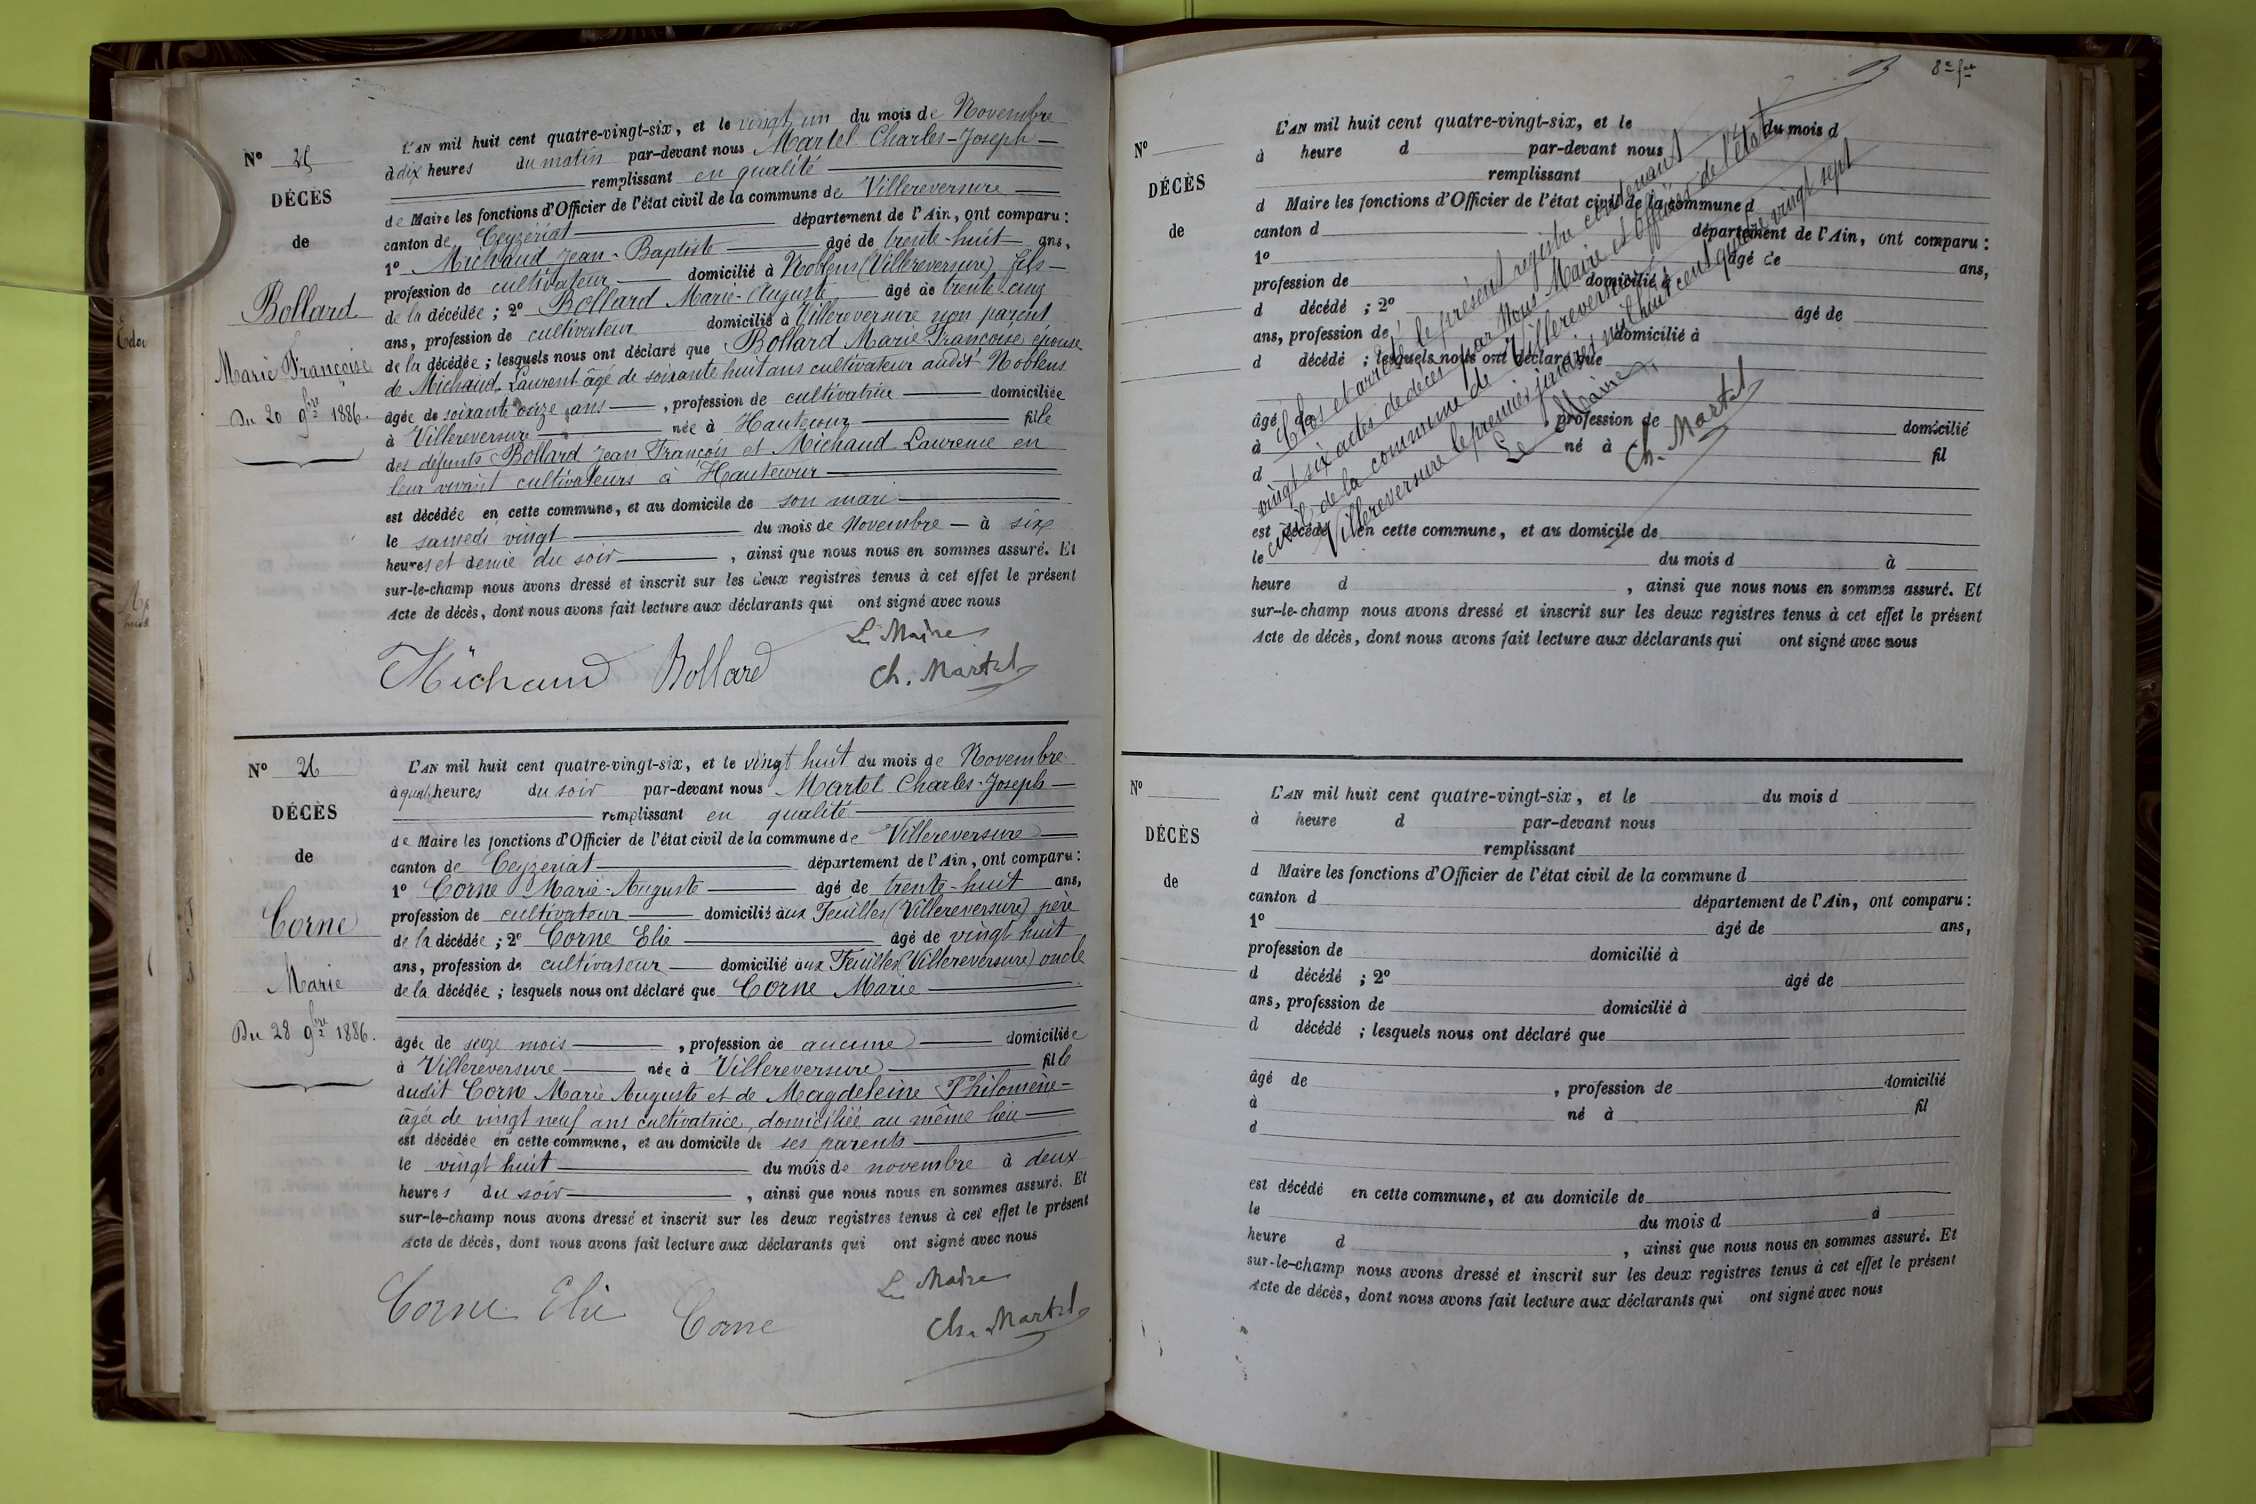 N° 25
DÉCÈS
de
Bollard
Marie Françoise
Du 20 9bre 1886.
L'AN mil huit cent quatre-vingt-six, et le vingt un du mois de Novembre
à dix heures du matin par-devant nous Martel Charles-Joseph
remplissant en qualité
de Maire les fonctions d'Officier de l'état civil de la commune de Villereversure
canton de Ceyzériat département de l'Ain, ont comparu :
1° Michaud Jean-Baptiste âgé de trente-huit ans,
profession de cultivateur domicilié à Noblens (Villereversure) fils
de la décédée ; 2° Bollard Marie-Auguste âgé de trente cinq
ans, profession de cultivateur domicilié à Villereversure non parent
de la décédée ; lesquels nous ont déclaré que Bollard Marie Francoise épouse
de Michaud Laurent âgé de soixante huit ans cultivateur audit Noblens
âgée de soixante onze ans, profession de cultivatrice domiciliée
à Villereversure née à Hautecour fille
des défunts Bollard Jean François et Michaud Laurence en
leur vivant cultivateurs à Hautecour
est décédée en cette commune, et au domicile de son mari
le samedi vingt du mois de Novembre à six
heures et demie du soir, ainsi que nous nous en sommes assuré. Et
sur-le-champ nous avons dressé et inscrit sur les deux registres tenus à cet effet le présent
Acte de décès, dont nous avons fait lecture aux déclarants qui ont signé avec nous
Le Maire
Michaud Bollard Ch. Martel
N° 26
DÉCÈS
de
Corne
Marie
Du 28 9bre 1886.
L'AN mil huit cent quatre-vingt-six, et le vingt huit du mois de Novembre
à quatre heures du soir par-devant nous Martel Charles-Joseph
remplissant en qualité
de Maire les fonctions d'Officier de l'état civil de la commune de Villereversure
canton de Ceyzériat département de l'Ain, ont comparu :
1° Corne Marie-Auguste âgé de trente-huit ans,
profession de cultivateur domicilié aux Feuilles (Villereversure) père
de la décédée ; 2° Corne Elie âgé de vingt huit
ans, profession de cultivateur domicilié aux Feuilles (Villereversure) oncle
de la décédée ; lesquels nous ont déclaré que Corne Marie
âgée de seize mois, profession de aucune domiciliée
à Villereversure née à Villereversure fille
dudit Corne Marie Auguste et de Magdeleine Philomène
âgée de vingt neuf ans cultivatrice, domiciliée au même lieu
est décédée en cette commune, et au domicile de ses parents
le vingt huit du mois de novembre à deux
heures du soir, ainsi que nous nous en sommes assuré. Et
sur-le-champ nous avons dressé et inscrit sur les deux registres tenus à cet effet le présent
Acte de décès, dont nous avons fait lecture aux déclarants qui ont signé avec nous
Le Maire
Corne Elie Corne Ch. Martel
8e fet
N°
DÉCÈS
de
L'AN mil huit cent quatre-vingt-six, et le du mois d
à heure d par-devant nous
remplissant
d Maire les fonctions d'Officier de l'état civil de la commune d
canton d département de l'Ain, ont comparu :
1° âgé de ans,
profession de domicilié à
d décédé ; 2° âgé de
ans, profession de domicilié à
d décédé ; lesquels nous ont déclaré que
âgé de , profession de domicilié
à né à fil
d
est décédé en cette commune, et au domicile de
le du mois d à
heure d , ainsi que nous nous en sommes assuré. Et
sur-le-champ nous avons dressé et inscrit sur les deux registres tenus à cet effet le présent
Acte de décès, dont nous avons fait lecture aux déclarants qui ont signé avec nous
Clos et arrêté le présent registre contenant
vingt six actes de décès par Nous Maire et Officier de l'état
civil de la commune de Villereversure
Villereversure le premier janvier mil huit cent quatre vingt sept
Le Maire,
Ch. Martel
N°
DÉCÈS
de
L'AN mil huit cent quatre-vingt-six, et le du mois d
à heure d par-devant nous
remplissant
d Maire les fonctions d'Officier de l'état civil de la commune d
canton d département de l'Ain, ont comparu :
1° âgé de ans,
profession de domicilié à
d décédé ; 2° âgé de
ans, profession de domicilié à
d décédé ; lesquels nous ont déclaré que
âgé de , profession de domicilié
à né à fil
d
est décédé en cette commune, et au domicile de
le du mois d à
heure d , ainsi que nous nous en sommes assuré. Et
sur-le-champ nous avons dressé et inscrit sur les deux registres tenus à cet effet le présent
Acte de décès, dont nous avons fait lecture aux déclarants qui ont signé avec nous